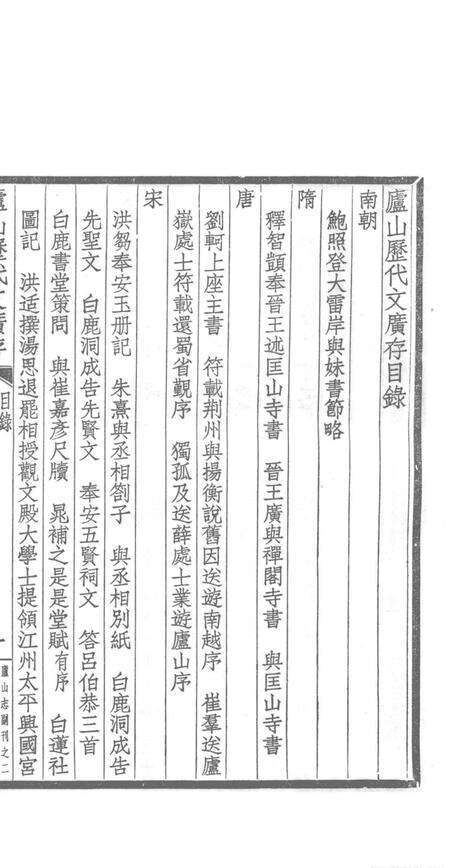 廬山歷代文廣存目錄
南朝
鮑照登大雷岸與妹書節略
隋
釋智顗奉晉王述匡山寺書　晉王廣與禪閣寺書　與匡山寺書
唐
劉軻上座主書　符載荆州與揚衡說舊因送遊南越序　崔羣送廬
嶽處士符載還蜀省覲序　獨孤及送薛處士業遊廬山序
宋
洪芻奉安玉册記　朱熹與丞相劄子　與丞相別紙　白鹿洞成告
先聖文　白鹿洞成告先賢文　奉安五賢祠文　答呂伯恭三首
白鹿書堂策問　與崔嘉彥尺牘　晁補之是是堂賦有序　白蓮社
圖記　洪适撰湯思退罷相授觀文殿大學士提領江州太平興國宮
廬山歷代文廣存　目錄　一　廬山志副刊之二